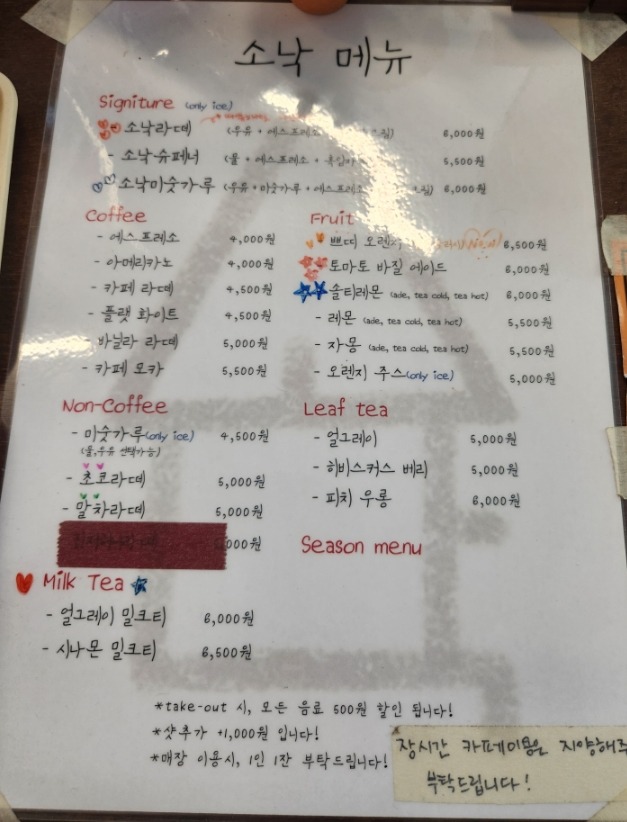 소낙 메뉴
Signiture (only ice)
소낙라떼 (우유 + 에스프레소 6,000원
- 소낙슈페너 (물 + 에스프레소 + 5,500원
소낙미숫가루 (우유 + 미숫가루 + 에스프레소 6,000원
Coffee
- 에스프레소 4,000원
- 아메리카노 4,000원
- 카페 라떼 4,500원
- 플랫 화이트 4,500원
바닐라 라떼 5,000원
- 카페 모카 5,500원
Fruit
쁘띠 오렌지 6,500원
토마토 바질 에이드 6,000원
솔티레몬 (ade, tea cold, tea hot) 6,000원
- 레몬 (ade, tea cold, tea hot) 5,500원
- 자몽 (ade, tea cold, tea hot) 5,500원
- 오렌지 주스(only ice) 5,000원
Non-Coffee
- 미숫가루(only ice) 4,500원
(물,우유 선택가능)
- 초코라떼 5,000원
- 말차라떼 5,000원
000원
Leaf tea
- 얼그레이 5,000원
- 히비스커스 베리 5,000원
- 피치 우롱 6,000원
Season menu
Milk Tea
- 얼그레이 밀크티 6,000원
- 시나몬 밀크티 6,500원
*take-out 시, 모든 음료 500원 할인 됩니다!
*샷추가 +1,000원 입니다!
*매장 이용시, 1인 1잔 부탁드립니다!
장시간 카페이용은 지양해주
부탁드립니다!